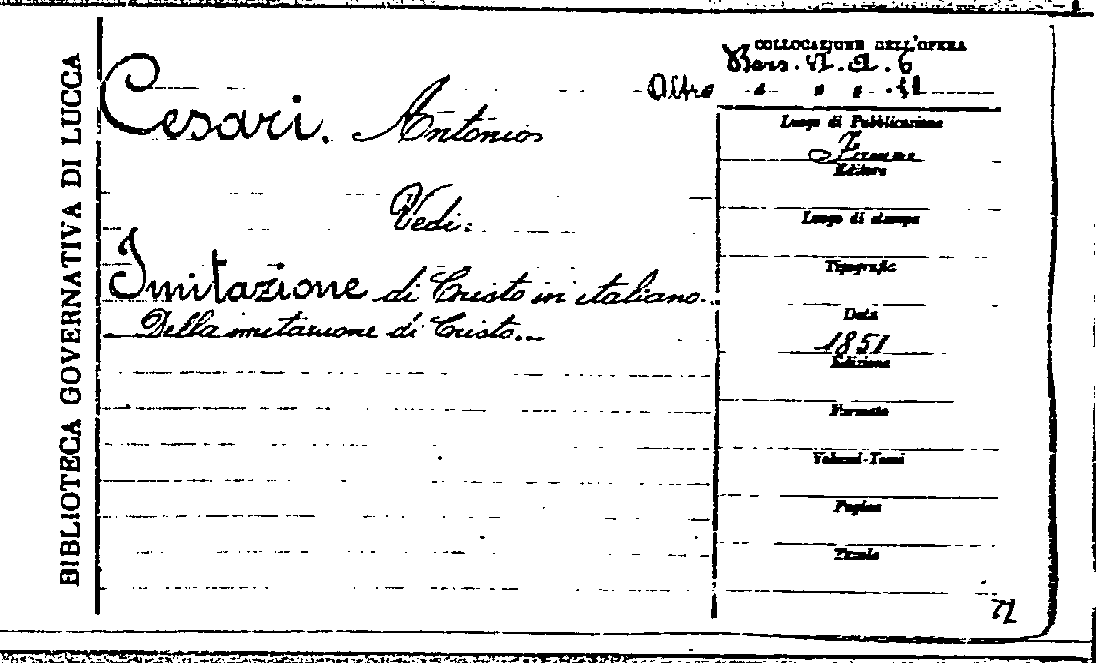 BIBLIOTECA GOVERNATIVA DI LUCCA
Cesari. Antonio
Vedi:
Imitazione di Cristo in italiano.
Della imitazione di Cristo...
COLLOCAZIONE DELL'OPERA
Bers. VI. a. 6
Altro " " " . 11
Luogo di Pubblicazione
Firenze
Editore
Luogo di stampa
Tipografia
Data
1851
Edizione
Formato
Volumi-Tomi
Pagine
Tavole